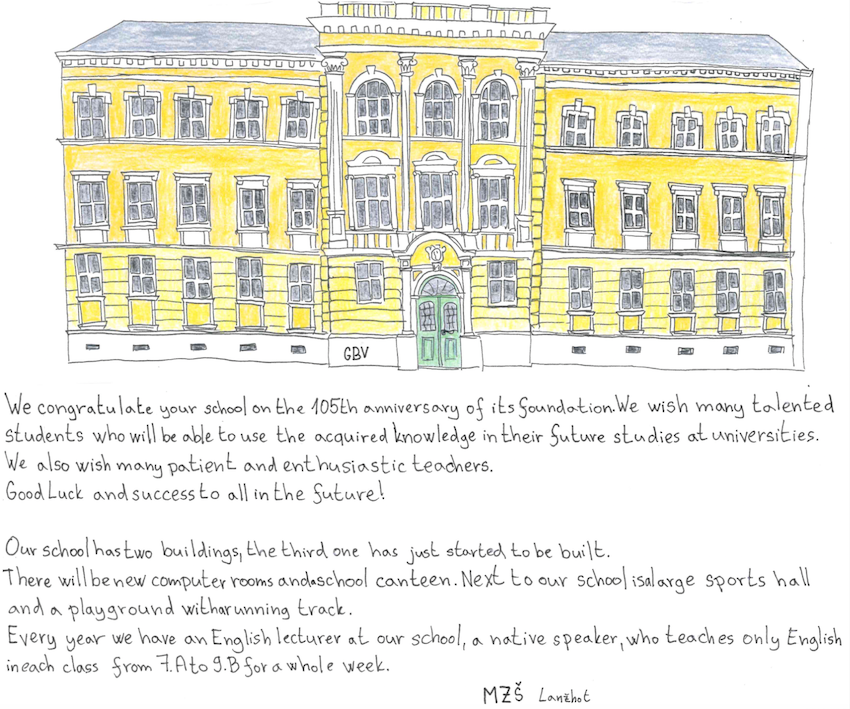 GBV
We congratulate your school on the 105th anniversary of its foundation. We wish many talented
students who will be able to use the acquired knowledge in their future studies at universities.
We also wish many patient and enthusiastic teachers.
Good Luck and success to all in the future!
Our school has two buildings, the third one has just started to be built.
There will be new computer rooms and a school canteen. Next to our school is a large sports hall
and a playground with a running track.
Every year we have an English lecturer at our school, a native speaker, who teaches only English
in each class from 7.A to 9.B for a whole week.
MZŠ Lanžhot